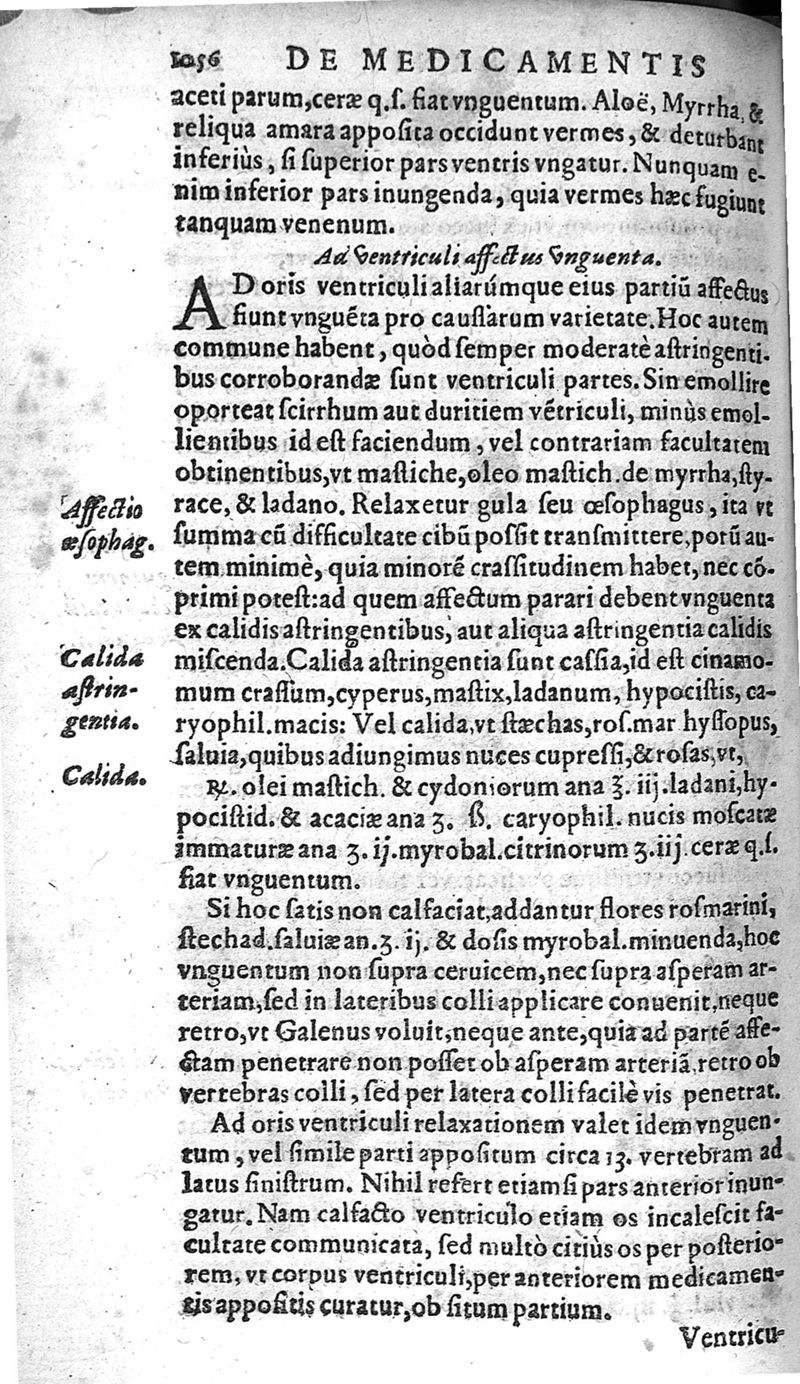 1056 DE MEDICAMENTIS
aceti parum,ceræ q.ſ. fiat vnguentum. Aloë, Myrrha, &
reliqua amara appoſita occidunt vermes, & deturbant
inferiùs, ſi ſuperior pars ventris vngatur. Nunquam e-
nim inferior pars inungenda, quia vermes hæc fugiunt
tanquam venenum.
Ad ventriculi affectus vnguenta.
AD oris ventriculi aliarúmque eius partiũ affectus
fiunt vnguẽta pro cauſſarum varietate. Hoc autem
commune habent, quòd ſemper moderatè aſtringenti-
bus corroborandæ ſunt ventriculi partes. Sin emollire
oporteat ſcirrhum aut duritiem vẽtriculi, minùs emol-
lientibus id eſt faciendum, vel contrariam facultatem
obtinentibus,vt maſtiche,oleo maſtich.de myrrha,ſty-
race, & ladano. Relaxetur gula ſeu œſophagus, ita vt
Affectio
œſophag.
ſumma cũ difficultate cibũ poſſit tranſmittere,potũ au-
tem minimè, quia minorẽ craſſitudinem habet, nec cõ-
primi poteſt:ad quem affectum parari debent vnguenta
ex calidis aſtringentibus, aut aliqua aſtringentia calidis
miſcenda.Calida aſtringentia ſunt caſſia,id eſt cinamo-
Calida
aſtrin-
gentia.
mum craſſum,cyperus,maſtix,ladanum, hypociſtis, ca-
ryophil.macis: Vel calida,vt ſtæchas,roſ.mar hyſſopus,
ſaluia,quibus adiungimus nuces cupreſſi,& roſas,vt,
Calida.
℞. olei maſtich. & cydoniorum ana ℥. iij.ladani,hy-
pociſtid. & acaciæ ana ʒ. ß. caryophil. nucis moſcatæ
immaturæ ana ʒ. ij.myrobal.citrinorum ʒ.iij.ceræ q.ſ.
fiat vnguentum.
Si hoc ſatis non calfaciat,addantur flores roſmarini,
ſtechad.ſaluiæ an.ʒ. ij. & doſis myrobal.minuenda,hoc
vnguentum non ſupra ceruicem,nec ſupra aſperam ar-
teriam,ſed in lateribus colli applicare conuenit,neque
retro,vt Galenus voluit,neque ante,quia ad partẽ affe-
ctam penetrare non poſſet ob aſperam arteriã,retro ob
vertebras colli, ſed per latera colli facilè vis penetrat.
Ad oris ventriculi relaxationem valet idem vnguen-
tum, vel ſimile parti appoſitum circa 13. vertebram ad
latus ſiniſtrum. Nihil refert etiamſi pars anterior inun-
gatur. Nam calfacto ventriculo etiam os incaleſcit fa-
cultate communicata, ſed multò citiùs os per poſterio-
rem, vt corpus ventriculi,per anteriorem medicamen-
tis appoſitis curatur,ob ſitum partium.
Ventricu-